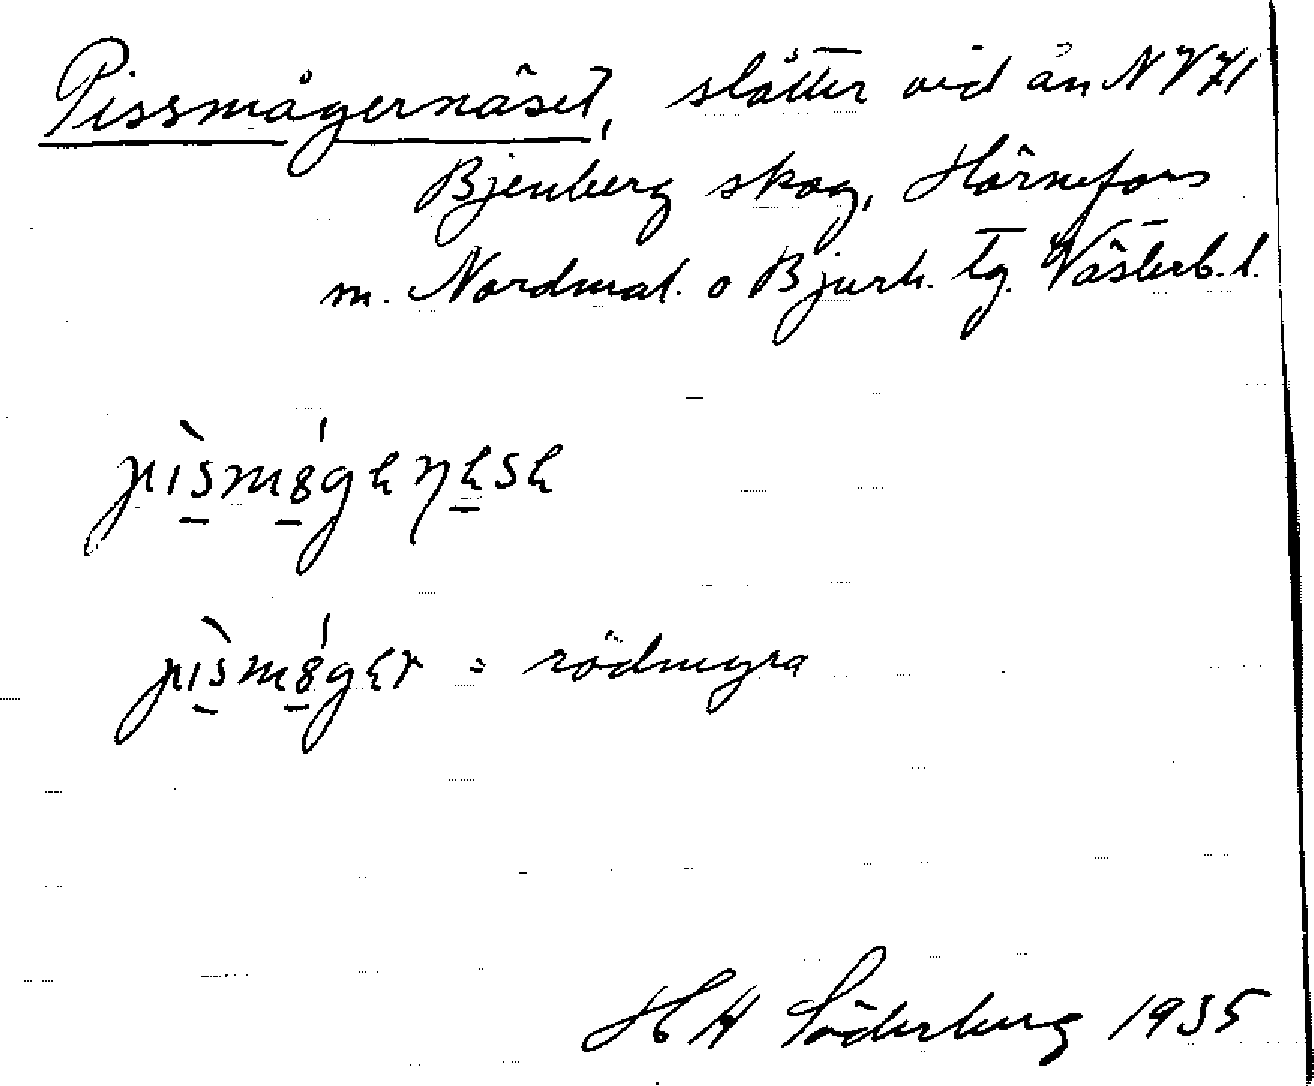 Pissmågernäset, slåtter vid ån NV
Bjenberg skog, Hörnefors
m. Nordmal. o Bjurh. tg. Västerb. l.
pismøgęr = rödmyra
H H Söderberg 1935